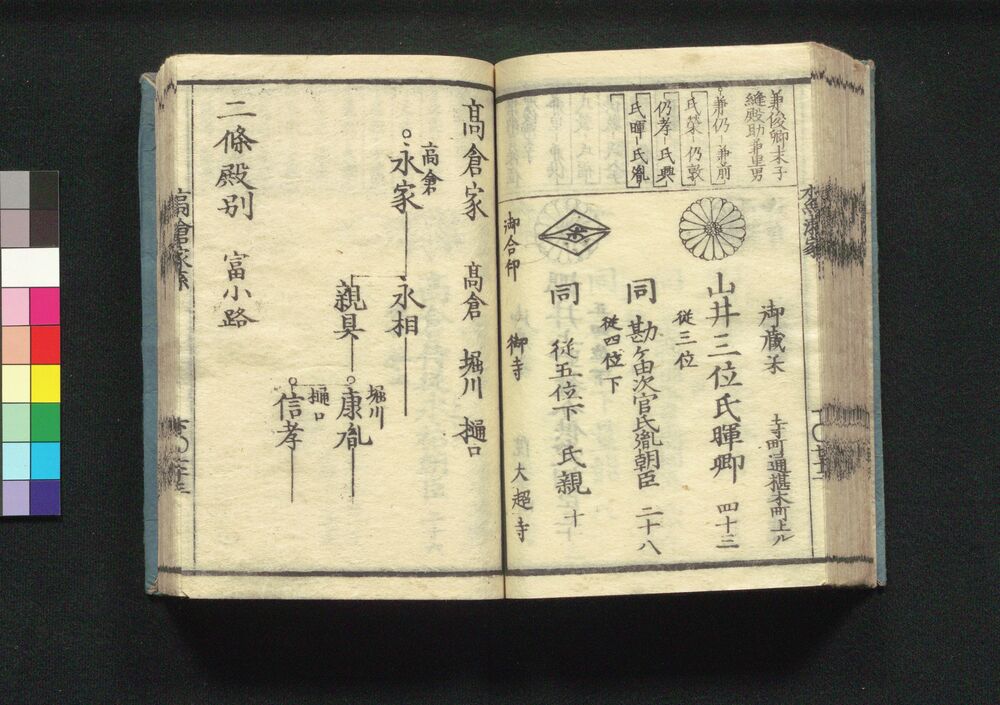 兼俊卿末子
縫殿助兼里男
兼仍―兼前
氏栄 仍敦
仍孝―氏興
氏暉―氏胤
御蔵米
寺町通椹木町上ル
山井三位氏暉卿 四十三
従三位
同 勘ヶ由次官氏胤朝臣 二十八
従四位下
同 従五位下 氏親 十
御合印 御寺 大超寺
水無瀬家
高倉家 高倉 堀川 樋口
高倉
永家
永相
親具
堀川
康胤
樋口
信孝
二條殿別 富小路
高倉家系